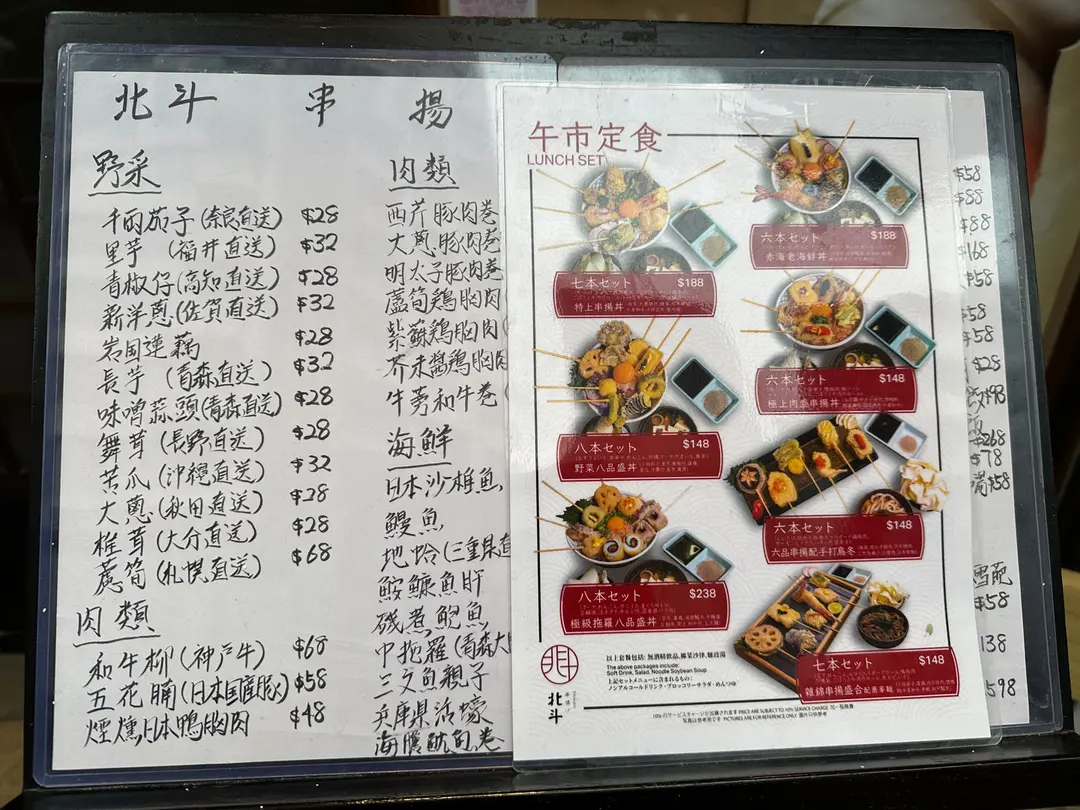 北斗 串 揚
野菜
千両茄子(奈良直送) $28
里芋 (福井直送) $32
青椒仔(高知直送) $28
新洋蔥(佐賀直送) $32
岩国蓮藕 $28
長芋 (青森直送) $32
味噌蒜頭(青森直送) $28
舞茸 (長野直送) $28
苦瓜 (沖縄直送) $32
大蔥 (秋田直送) $28
椎茸 (大分直送) $28
蘆筍 (札幌直送) $68
肉類
和牛柳(神戶牛) $68
五花腩(日本国産豚) $58
煙燻日本鴨胸肉 $48
肉類
西芹豚肉卷
大蔥豚肉卷
明太子豚肉卷
蘆筍鶏胸肉
紫蘇鶏胸肉(
芥末醬鶏胸肉
牛蒡和牛卷
海鮮
日本沙堆魚
鰻魚
地蛤(三重県直
鮟鱇魚肝
磯煮鮑魚
中拖羅(青森大
三文魚親子
兵庫県活蠔
海膽魷魚卷
午市定食
LUNCH SET
七本セット $188
特上串揚丼
六本セット $188
赤海老海鮮丼
八本セット $148
野菜八品盛丼
六本セット $148
極上肉盛串揚丼
六本セット $148
六品串揚配手打烏冬
八本セット $238
極級拖羅八品盛丼
七本セット $148
雜錦串揚盛合配蕎麥麵
北斗
以上套餐包括: 無酒精飲品, 椰菜沙律, 麵豉湯
The above packages include:
Soft Drink, Salad, Noodle Soybean Soup
上記セットメニューに含まれるもの:
ノンアルコールドリンク・ブロッコリーサラダ・めんつゆ
10%のサービスチャージが加算されます PRICE ARE SUBJECT TO 10% SERVICE CHANGE 另一服務費
写真は参考用です PICTURES ARE FOR REFERENCE ONLY 圖片只供參考
$58
$88
$88
$168
$58
$58
$58
$28
$98
$268
$78
$58
$58
138
598